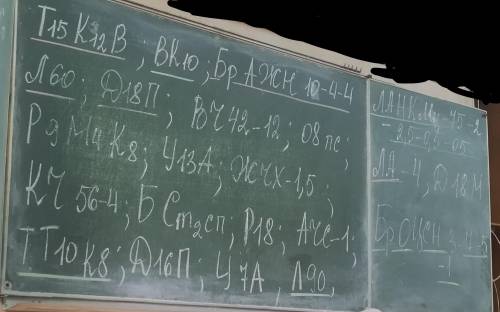 Т15К12В; ВК10; БрАЖН 10-4-4
Л60; Д18П; ВЧ 42-12; 08пс;
Р9М4К8; У13А; ЖЧХ-1,5;
КЧ 56-4; БСт2сп; Р18; АЧС-1;
ТТ10К8; Д16П; У7А, Л90,
ЛАНКМц 75-2
-2,5-0,5-0,5
ЛА-4, Д18М
БрОЦСН 3-4-5
-1